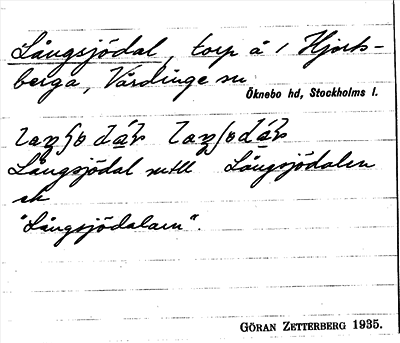 Långsjödal, torp å 1 Hjorts-
berga, Vårdinge sn
Öknebo hd, Stockholms l.
Långsjödal mtll Långsjödalen
ek
"Långsjödalarn".
GÖRAN ZETTERBERG 1935.